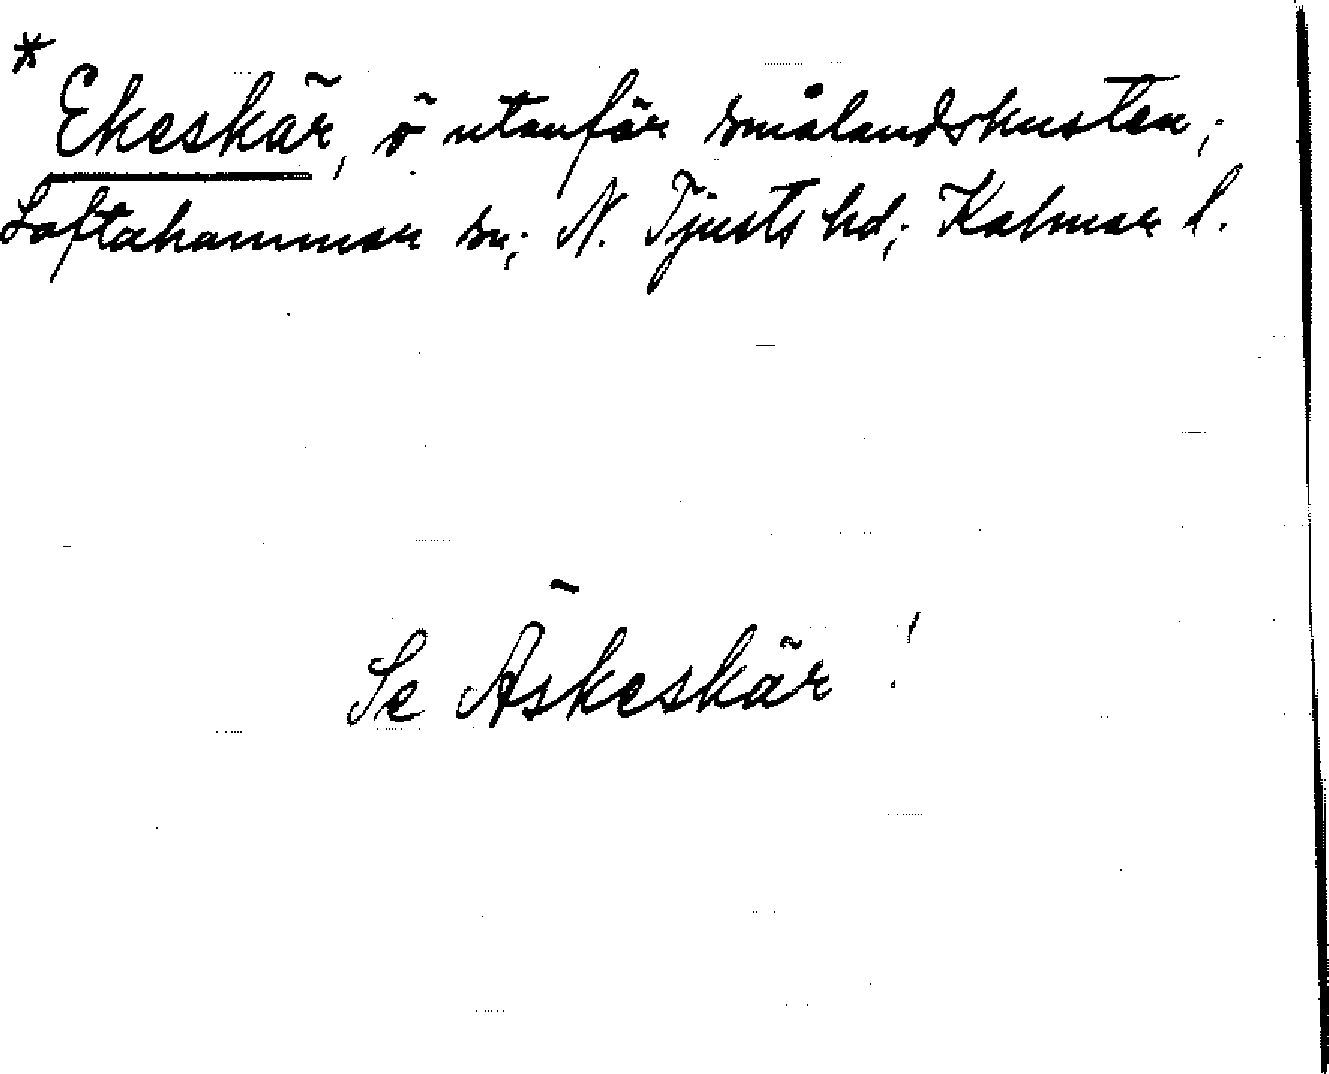 * Ekeskär, ö utanför smålandskusten;
Loftahammar sn; N. Tjusts hd; Kalmar l.
Se Äskeskär!